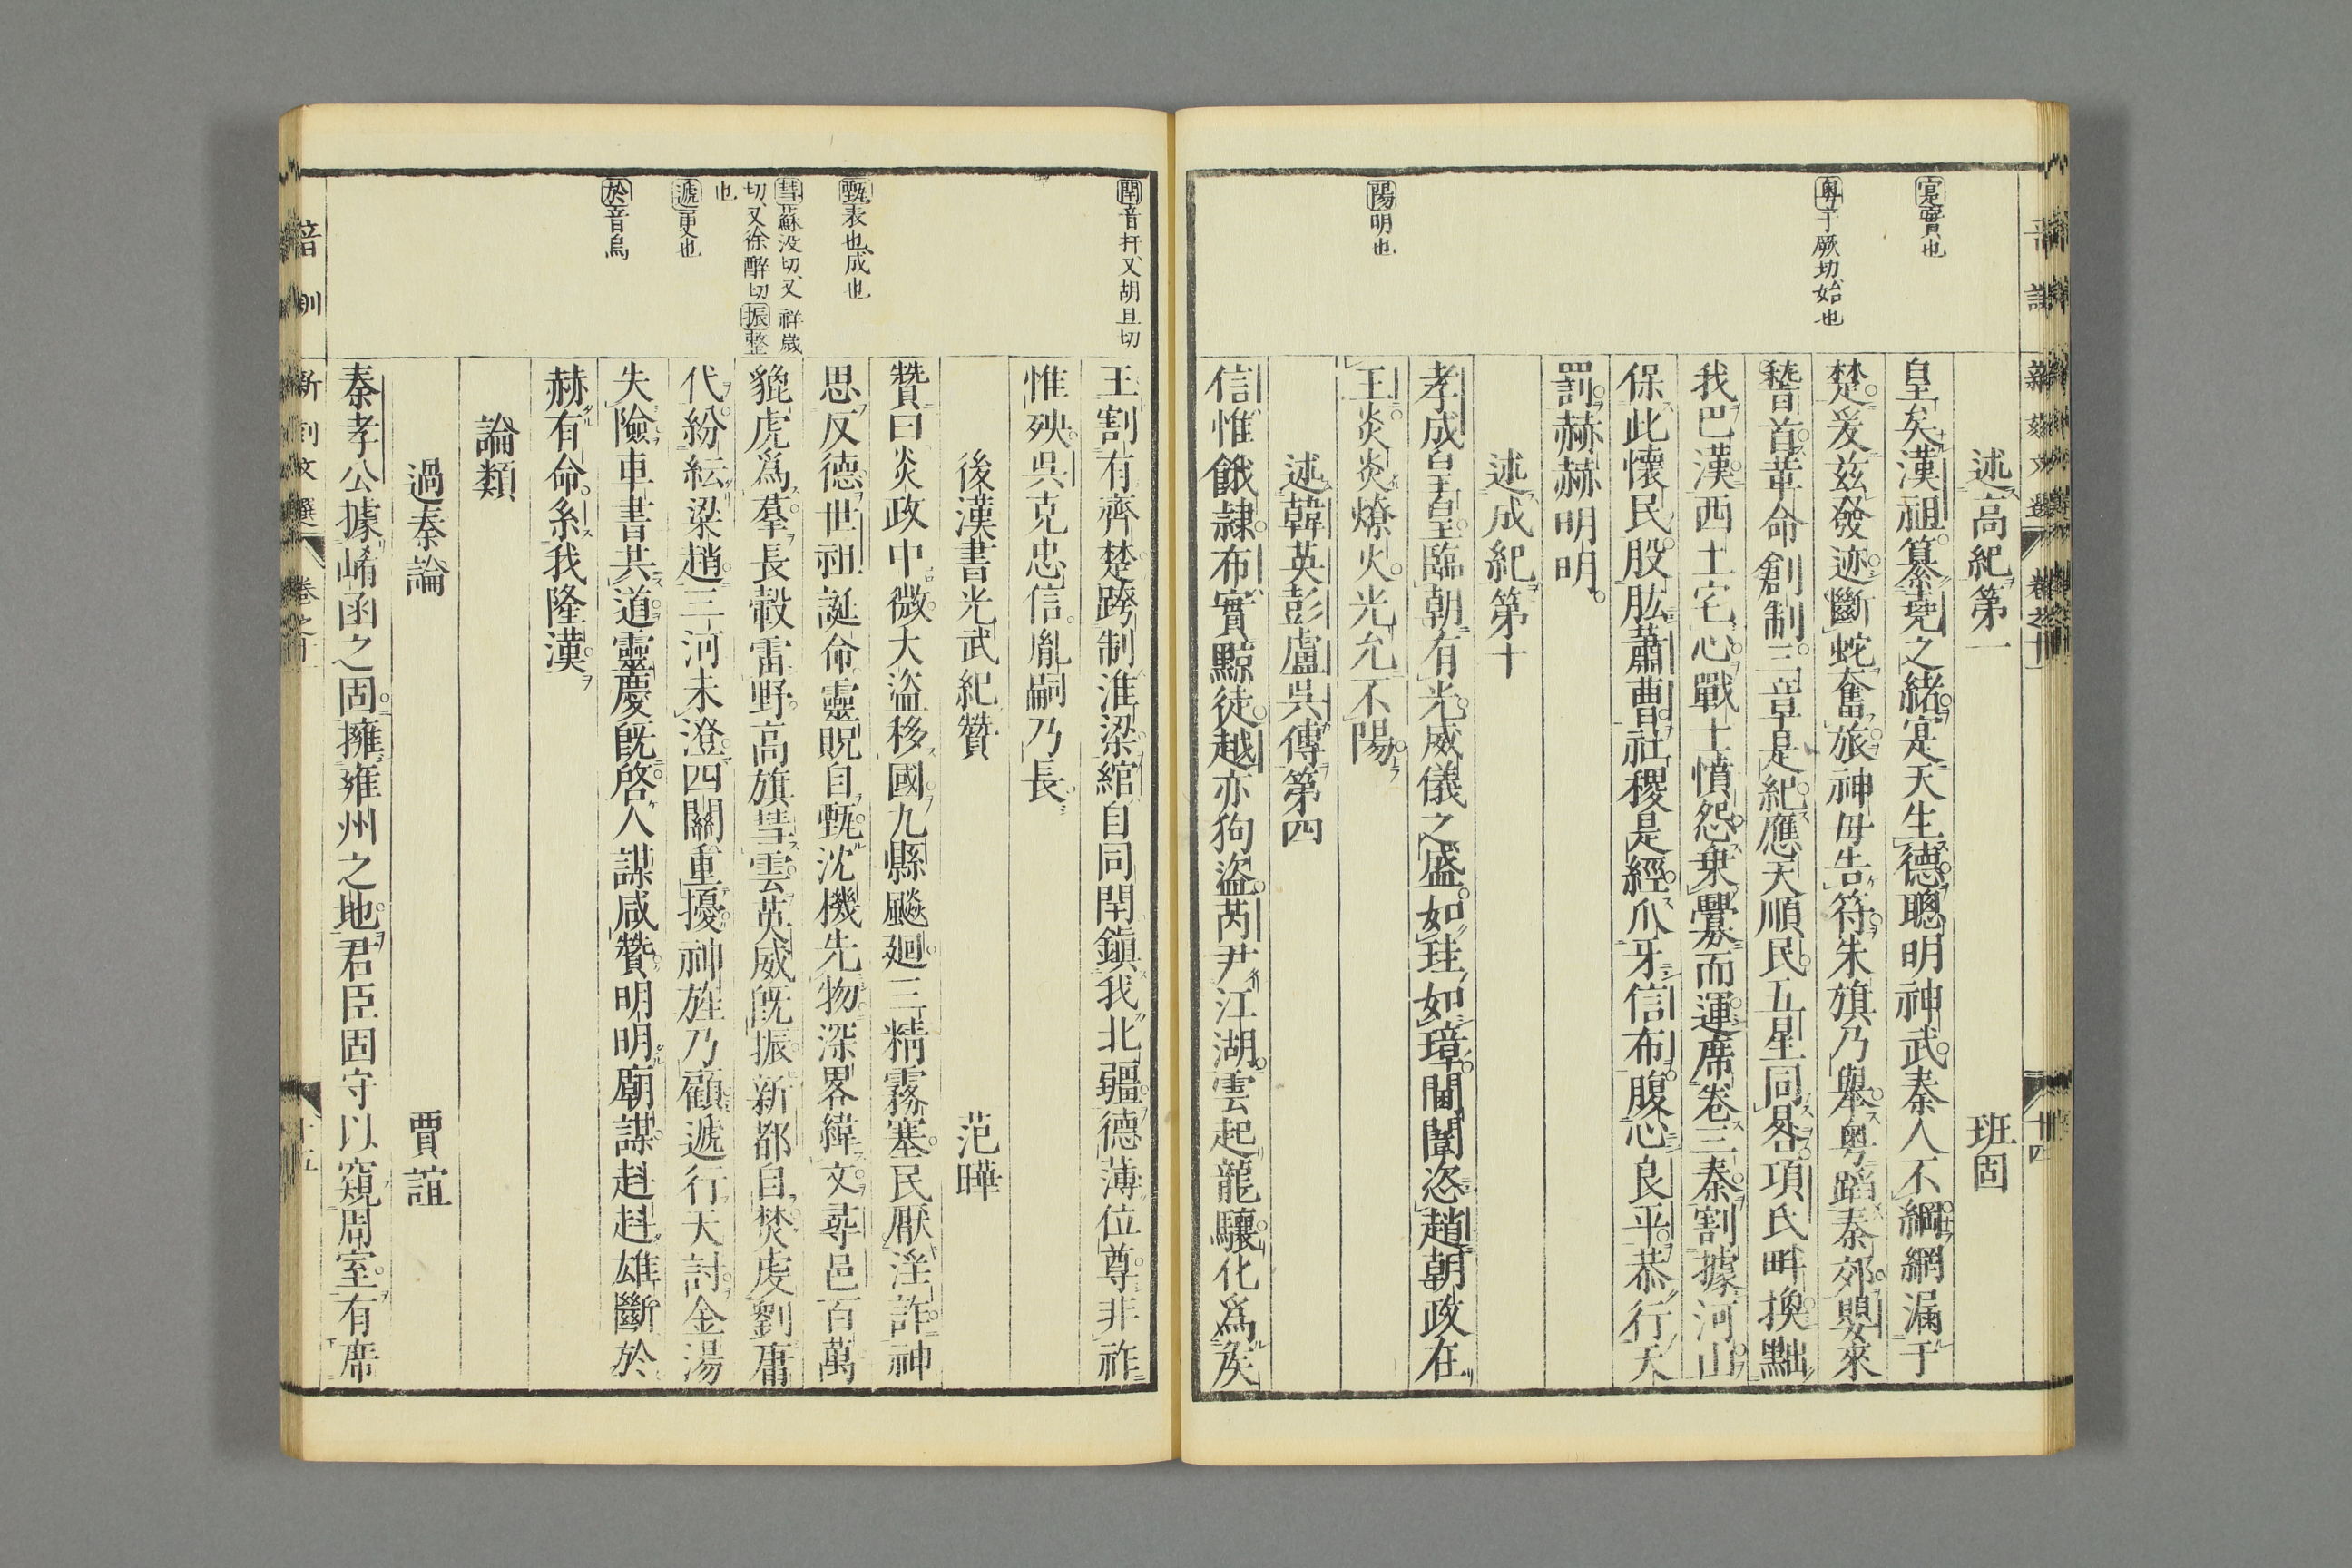 寔實也
粤于厥切、始也
陽明也
述高紀第一　班固
皇矣漢祖纂堯之緒寔天生德聰明神武秦人不綱網漏于
楚爰茲發迹斷蛇奮旅神母告符朱旗乃舉粤蹈秦郊嬰來
稽首革命創制三章是紀應天順民五星同晷項氏畔換黜
我巴漢西土宅心戰士憤怨乗釁而運席卷三秦割據河山
保此懷民股肱蕭曹社稷是經爪牙信布腹心良平恭行天
罰赫赫明明
述成紀第十
孝成皇皇臨朝有光威儀之盛如珪如璋閫闈恣趙朝政在
王炎炎燎火光允不陽
述韓英彭盧吳傳第四
信惟餓隷布實黥徒越亦狗盜芮尹江湖雲起龍驤化爲矦
閈音扞、又胡旦切
甄表也、成也
彗蘇没切、又祥歲
切、又徐醉切振整
也
遞更也
於音烏
王割有齊楚跨制淮梁綰自同閈鎮我北疆德薄位尊非祚
惟殃吳克忠信胤嗣乃長
後漢書光武紀贊　范曄
贊曰炎政中微大盜移國九縣飈廻三精霧塞民厭淫詐神
思反德世祖誕命靈貺自甄沈機先物深畧緯文尋邑百萬
貔虎爲羣長轂雷野高旗彗雲英威旣振新都自焚虔劉庸
代紛紜梁趙三河未澄四關重擾神旌乃顧遞行天討金湯
失險車書共道靈慶旣啓人謀咸贊明明廟謀赳赳雄斷於
赫有命系我隆漢
論類
過秦論　賈誼
秦孝公據崤函之固擁雍州之地君臣固守以窺周室有席